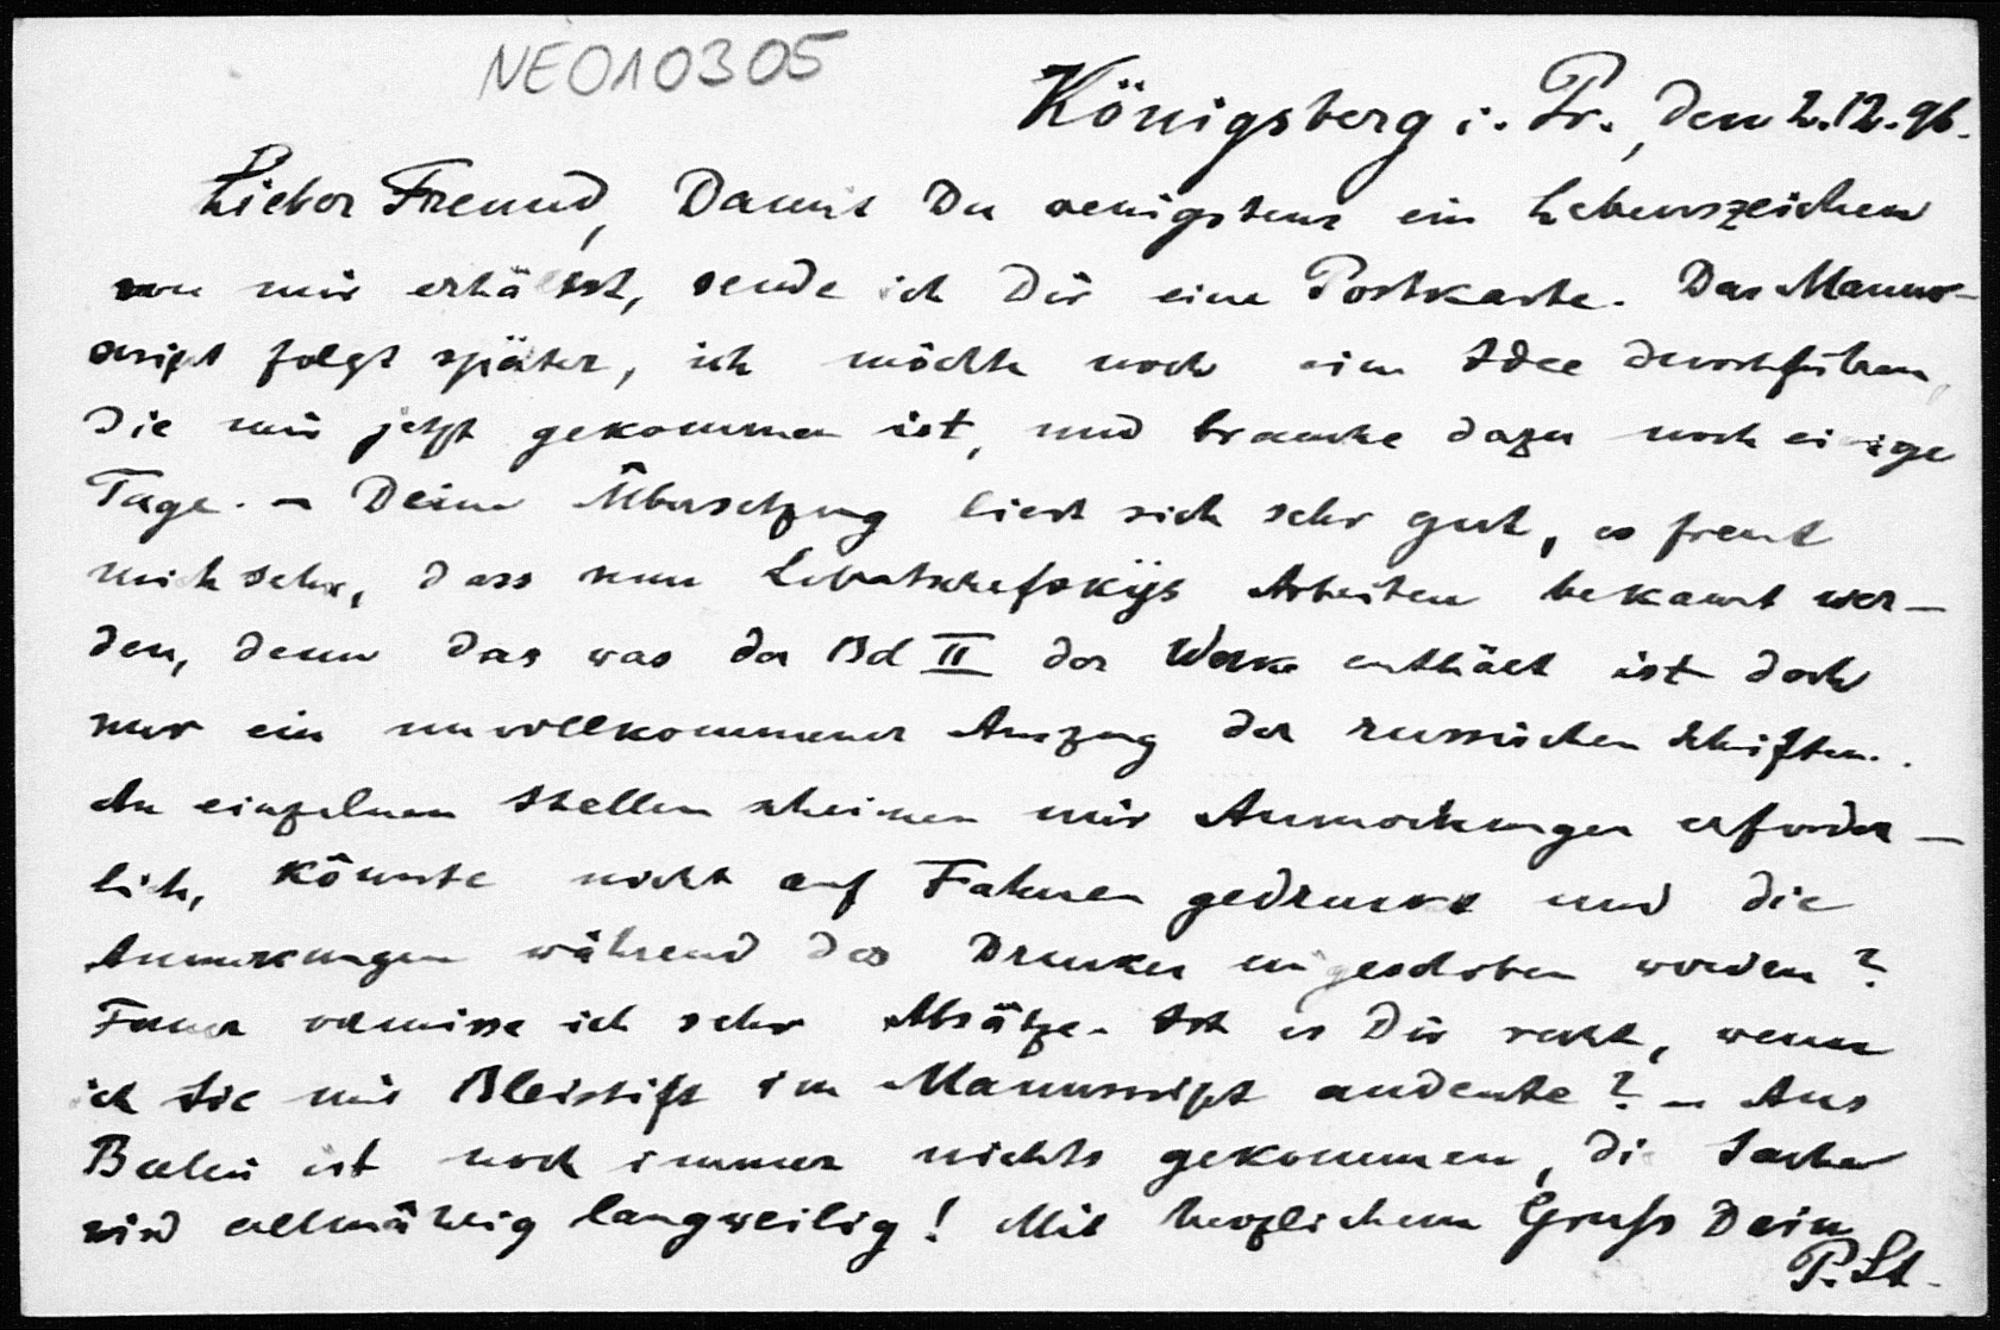 NE010305
Königsberg i. Pr., den 2.12.96.
Lieber Freund, Damit Du wenigstens ein Lebenszeichen
von mir erhältst, sende ich Dir eine Postkarte. Das Manus-
cript folgt später, ich möchte noch eine Idee durchführen,
die mir jetzt gekommen ist, und brauche dazu noch einige
Tage. – Deine Übersetzung liest sich sehr gut, es freut
mich sehr, dass nun Lobatschefskijs Arbeiten bekannt wer-
den, denn das was der Bd II der Werke enthält ist doch
nur ein unvollkommener Auszug der russischen Schriften.
An einzelnen Stellen scheinen mir Anmerkungen erforder-
lich, könnte nicht auf Fahnen gedruckt und die
Anmerkungen während des Druckes eingeschoben werden?
Ferner vermisse ich sehr Absätze. Ist es Dir recht, wenn
ich sie mit Bleistift im Manuscript andeute? – Aus
Berlin ist noch immer nichts gekommen, die Sache
wird allmählig langweilig! Mit herzlichem Gruss Dein
P. St.